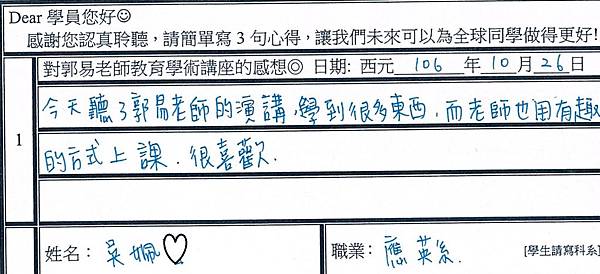 Dear 學員您好☺
感謝您認真聆聽，請簡單寫 3 句心得，讓我們未來可以為全球同學做得更好!
對郭易老師教育學術講座的感想◎ 日期: 西元 106 年 10 月 26 日
1
今天聽了郭易老師的演講,學到很多東西,而老師也用有趣
的方式上課.很喜歡.
姓名：吳姵♡ 職業：應英系. [學生請寫科系]